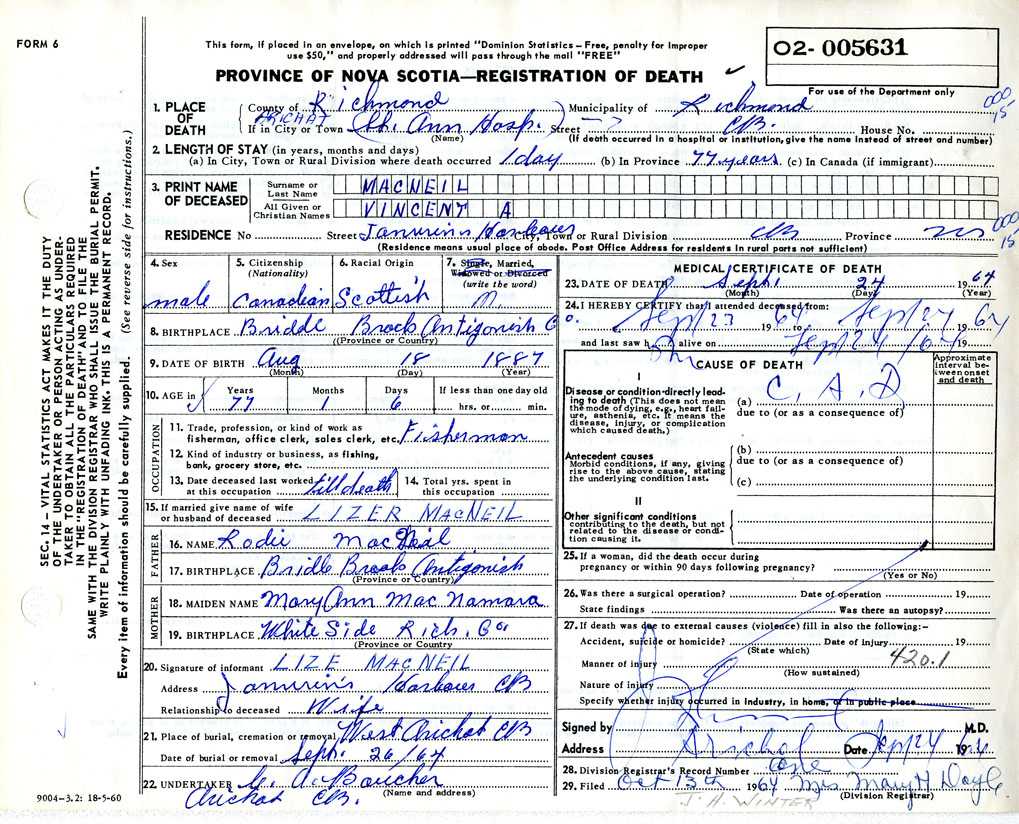 FORM 6
This form, if placed in an envelope, on which is printed "Dominion Statistics – Free, penalty for Improper
use $50," and properly addressed will pass through the mail "FREE"
02- 005631
For use of the Department only
PROVINCE OF NOVA SCOTIA—REGISTRATION OF DEATH
1. PLACE OF DEATH
County of Richmond Municipality of Richmond
000
15
ARICHAT
If in City or Town St. Ann Hosp. Street CB. House No.
(Name) (If death occurred in a hospital or institution, give the name instead of street and number)
2. LENGTH OF STAY (in years, months and days)
(a) In City, Town or Rural Division where death occurred 1 day (b) In Province 77 years (c) In Canada (if immigrant)
3. PRINT NAME OF DECEASED
Surname or Last Name MACNEIL
All Given or Christian Names VINCENT A
RESIDENCE No Street Janvrin's Harbour City, Town or Rural Division CB Province NS
000
15
(Residence means usual place of abode. Post Office Address for residents in rural parts not sufficient)
4. Sex
male
5. Citizenship
(Nationality)
Canadian
6. Racial Origin
Scottish
7. Single, Married,
Widowed or Divorced
(write the word)
M
8. BIRTHPLACE Briddle Brook Antigonish Co.
(Province or Country)
9. DATE OF BIRTH Aug 18 1887
(Month) (Day) (Year)
10. AGE in Years Months Days If less than one day old
77 1 6 hrs. or min.
OCCUPATION
11. Trade, profession, or kind of work as
fisherman, office clerk, sales clerk, etc. Fisherman
12. Kind of industry or business, as fishing,
bank, grocery store, etc.
13. Date deceased last worked
at this occupation till death
14. Total yrs. spent in
this occupation
15. If married give name of wife
or husband of deceased LIZER MACNEIL
FATHER
16. NAME Rodie MacNeil
17. BIRTHPLACE Bridle Brook Antigonish
(Province or Country)
MOTHER
18. MAIDEN NAME Mary Ann MacNamara
19. BIRTHPLACE White Side Rich. Co.
(Province or Country
20. Signature of informant LIZE MACNEIL
Address Janvrin's Harbour CB
Relationship to deceased Wife
21. Place of burial, cremation or removal West Arichat CB
Date of burial or removal Sept. 26/64
22. UNDERTAKER A. Boucher
(Name and address)
Arichat CB.
MEDICAL CERTIFICATE OF DEATH
23. DATE OF DEATH Sept. 24 1964
(Month) (Day) (Year)
24. I HEREBY CERTIFY that I attended deceased from:
Sept 23 1964 to Sept 24 1964
and last saw h im alive on Sept 24/64 19
CAUSE OF DEATH
Approximate interval between onset and death
I
Disease or condition-directly leading to death (This does not mean the mode of dying, e.g., heart failure, asthenia, etc. It means the disease, injury, or complication which caused death.)
(a) C. A. D
due to (or as a consequence of)
Antecedent causes
Morbid conditions, if any, giving rise to the above cause, stating the underlying condition last.
(b)
due to (or as a consequence of)
(c)
II
Other significant conditions
contributing to the death, but not related to the disease or condition causing it.
25. If a woman, did the death occur during
pregnancy or within 90 days following pregnancy?
(Yes or No)
26. Was there a surgical operation? Date of operation 19
State findings Was there an autopsy?
27. If death was due to external causes (violence) fill in also the following:–
Accident, suicide or homicide? Date of injury 19
(State which)
420.1
Manner of injury
(How sustained)
Nature of injury
Specify whether injury occurred in Industry, in home, or in public place
Signed by M.D.
Address Arichat Date Sept 24 1964
28. Division Registrar's Record Number one
29. Filed Oct 13th 1964 Mrs Mary H Doyle
(Division Registrar)
J. H. WINTER
SEC. 14 – VITAL STATISTICS ACT MAKES IT THE DUTY
OF THE UNDERTAKER OR PERSON ACTING AS UNDER-
TAKER TO OBTAIN ALL THE PARTICULARS REQUIRED
IN THE "REGISTRATION OF DEATH" AND TO FILE THE
SAME WITH THE DIVISION REGISTRAR WHO SHALL ISSUE THE BURIAL PERMIT.
WRITE PLAINLY WITH UNFADING INK. THIS IS A PERMANENT RECORD.
Every item of information should be carefully supplied. (See reverse side for instructions.)
9004–3.2: 18-5-60